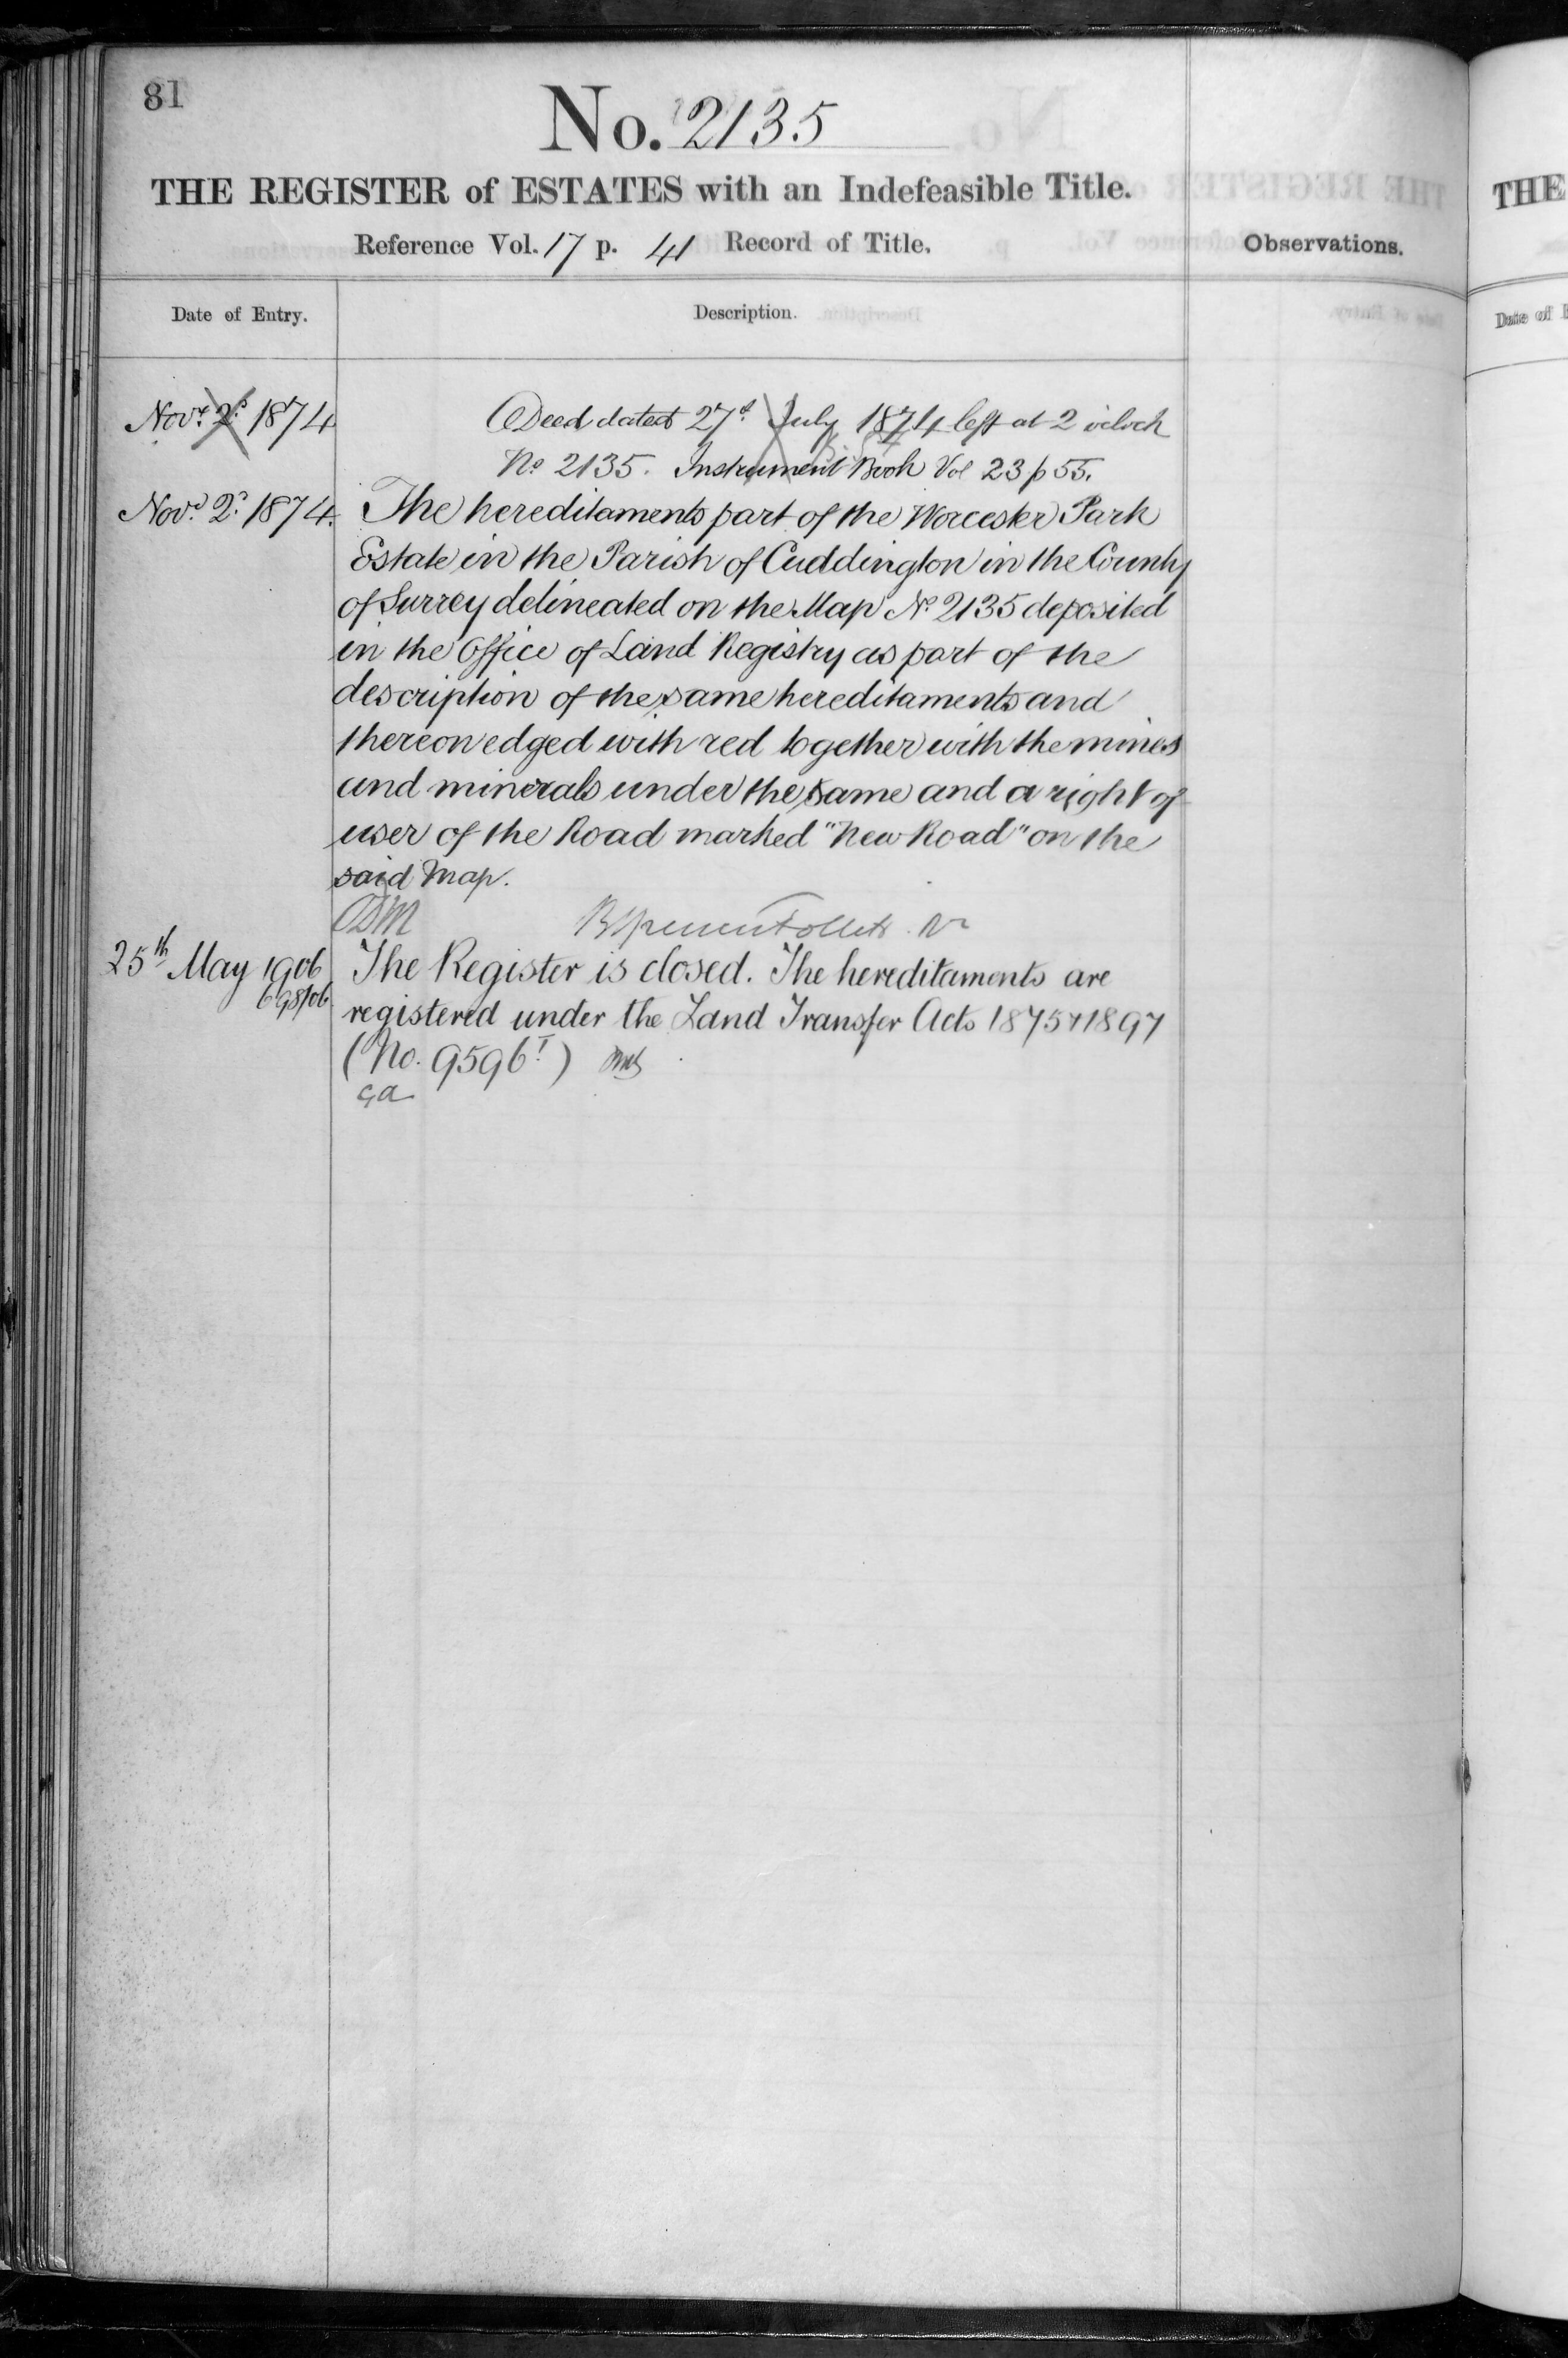 81
No. 2135
THE REGISTER of ESTATES with an Indefeasible Title.
Reference Vol. 17 p. 41 Record of Title.
Observations.
Date of Entry.
Description.
Novr. 2d. 1874
Deed dated 27th July 1874 left at 2 o'clock
No 2135. Instrument Book Vol 23 p 55.
Novr. 2d. 1874.
The hereditaments part of the Worcester Park
Estate in the Parish of Cuddington in the County
of Surrey delineated on the Map No. 2135 deposited
in the Office of Land Registry as part of the
description of the same hereditaments and
thereon edged with red together with the mines
and minerals under the same and a right of
user of the Road marked "New Road" on the
said Map.
Follett
25th May 1906
The Register is closed. The hereditaments are
registered under the Land Transfer Acts 1875 & 1897
(No. 9596)
THE
Date of